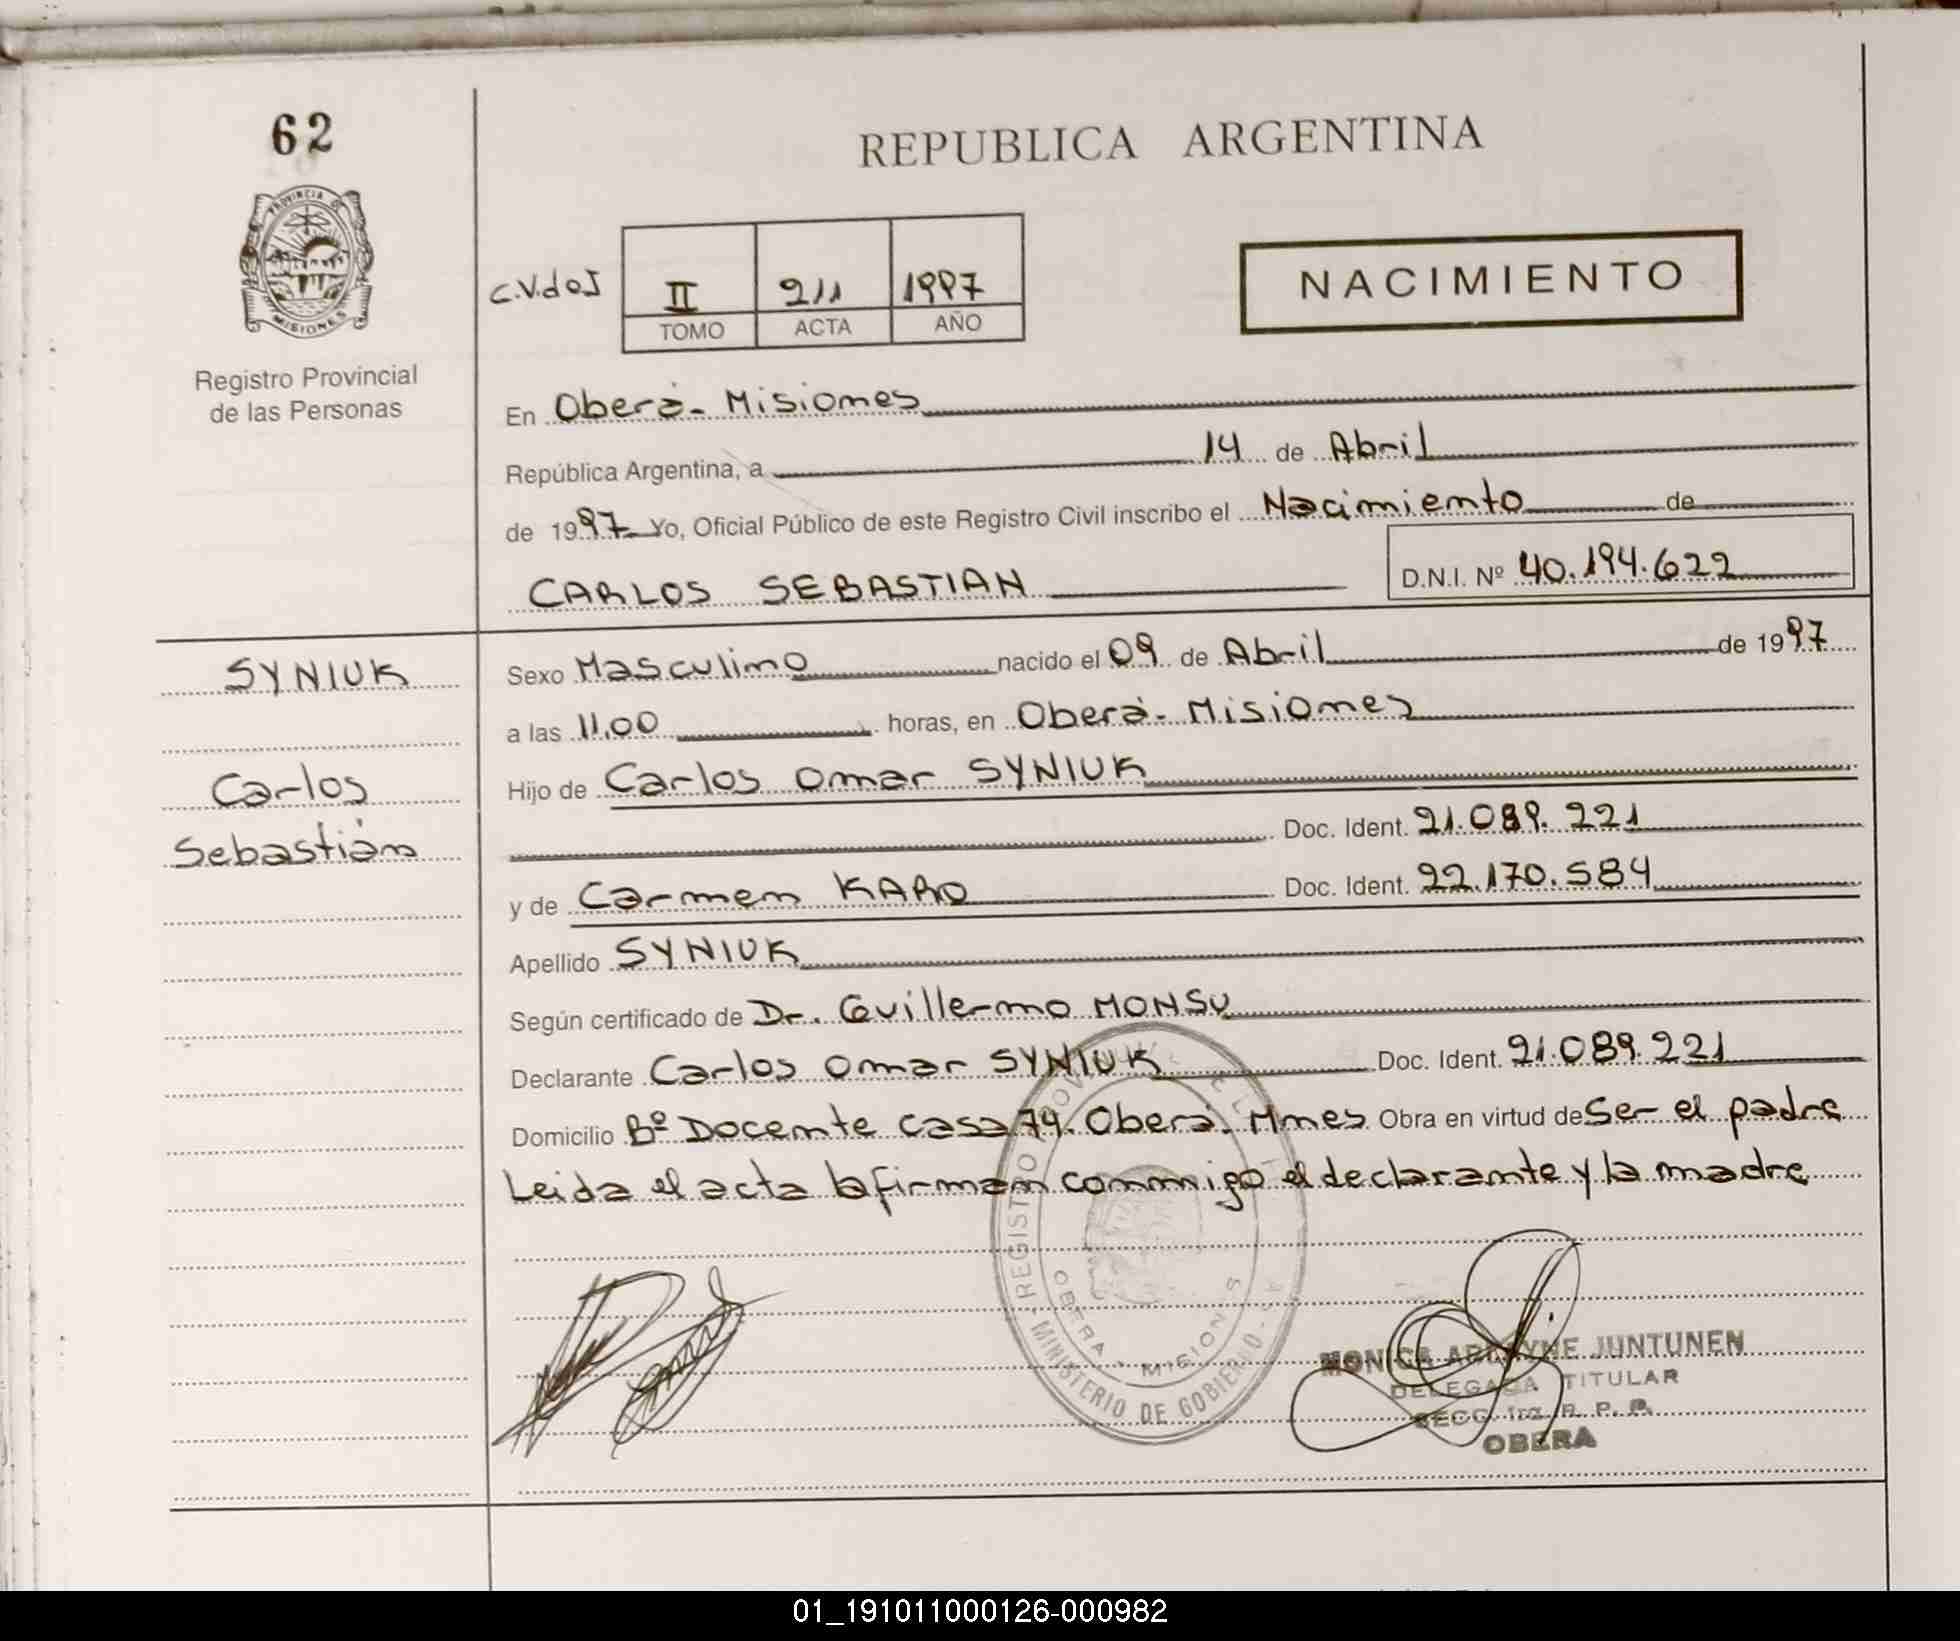 62
REPUBLICA ARGENTINA
PROVINCIA DE
MISIONES
Registro Provincial
de las Personas
C.V.do I
II 211 1997
TOMO ACTA AÑO
NACIMIENTO
En Oberá - Misiones
República Argentina, a 14 de Abril
de 1997 Yo, Oficial Público de este Registro Civil inscribo el Nacimiento de
CARLOS SEBASTIAN D.N.I. Nº 40.194.622
SYNIUK
Carlos
Sebastián
Sexo Masculino nacido el 09 de Abril de 1997
a las 11,00 horas, en Oberá - Misiones
Hijo de Carlos Omar SYNIUK
Doc. Ident. 21.089.221
y de Carmen KARO Doc. Ident. 22.170.584
Apellido SYNIUK
Según certificado de Dr. Guillermo MONSU
Declarante Carlos Omar SYNIUK Doc. Ident. 21.089.221
Domicilio Bº Docente casa 74. Oberá. Mnes Obra en virtud de Ser el padre
Leida el acta la firman conmigo el declarante y la madre
REGISTRO
OBERA - MISIONES
MINISTERIO DE GOBIERNO
MONICA JUNTUNEN
DELEGADA TITULAR
SECC. 1ra. R. P. P.
OBERA
01_191011000126-000982